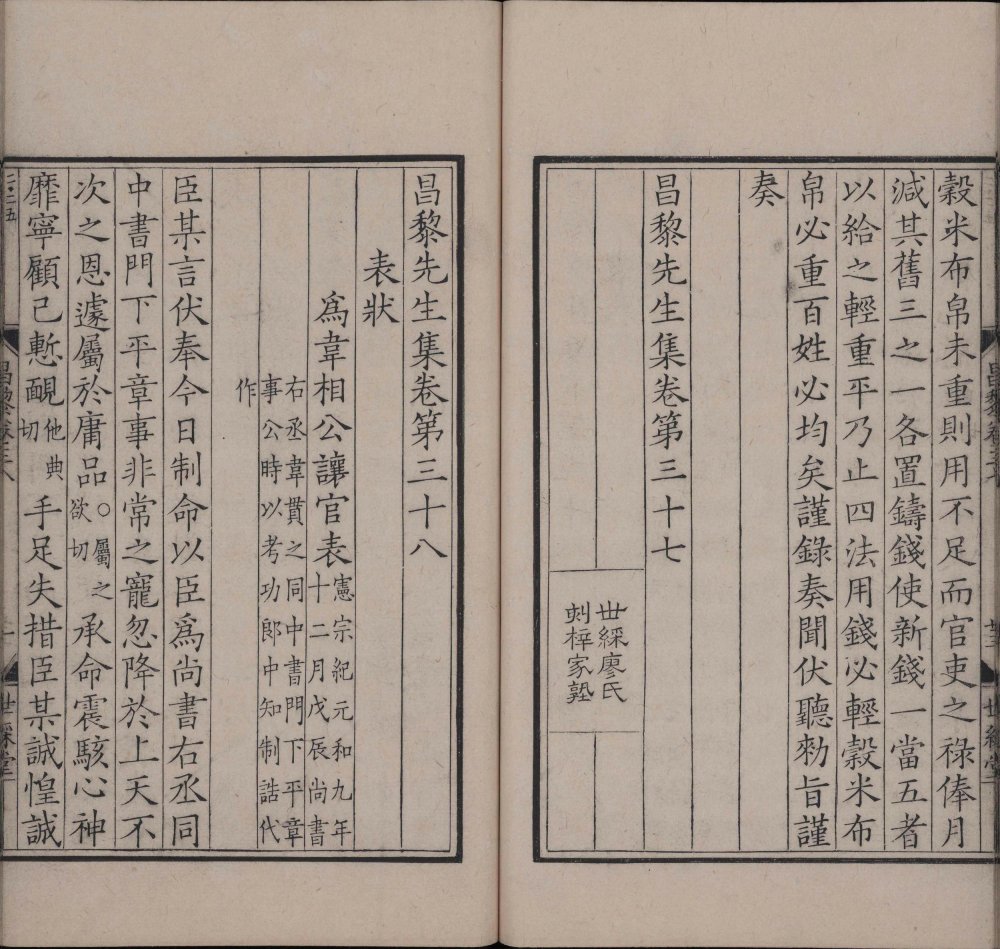 穀米布帛未重則用不足而官吏之祿俸月
減其舊三之一各置鑄錢使新錢一當五者
以給之輕重平乃止四法用錢必輕穀米布
帛必重百姓必均矣謹錄奏聞伏聽勑旨謹
奏
昌黎先生集卷第三十七
世綵廖氏
刻梓家塾
昌黎先生集卷第三十八
表狀
爲韋相公讓官表
憲宗紀元和九年
十二月戊辰尚書
右丞韋貫之同中書門下平章
事公時以考功郎中知制誥代
作
臣某言伏奉今日制命以臣爲尚書右丞同
中書門下平章事非常之寵忽降於上天不
次之恩遽屬於庸品○屬之欲切承命震駭心神
靡寧顧己慙靦他典切手足失措臣某誠惶誠
世綵堂